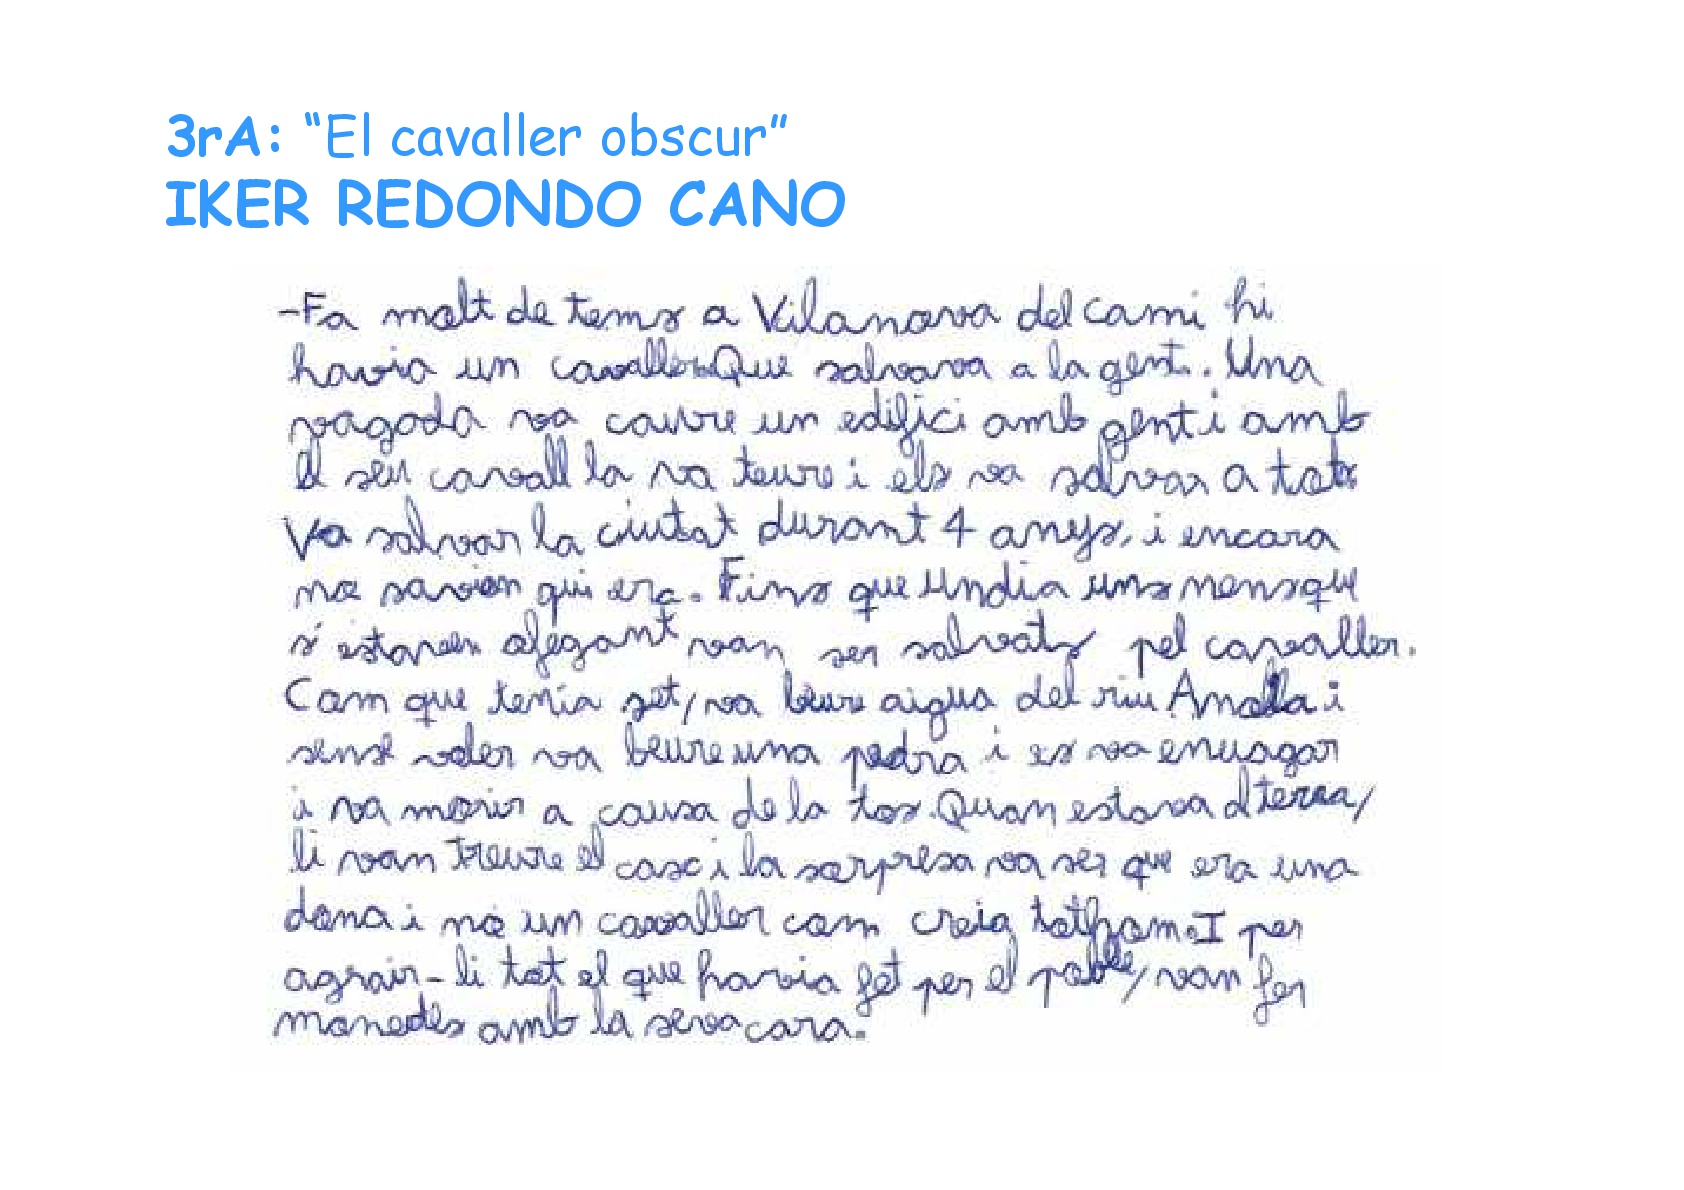 3rA: “El cavaller obscur”
IKER REDONDO CANO
-Fa molt de tems a Vilanova del cami hi
havia un cavaller Que salvava a la gent. Una
vagada va caure un edifici amb gent i amb
el seu cavall la va teure i els va salvar a tots
Va salvar la ciutat durant 4 anys, i encara
no savien qui era. Fins que Un dia uns nens que
s'estaven ofegant van ser salvats pel cavaller.
Com que tenía set, va beure aigua del riu Anolla i
sense voler va beure una pedra i es va ennuagar
i va morir a causa de la tos. Quan estava al terra,
li van treure el casc i la sorpresa va ser que era una
dona i no un cavaller com creia tothom. I per
agrair-li tot el que havia fet per el poble, van fer
monedes amb la seva cara.